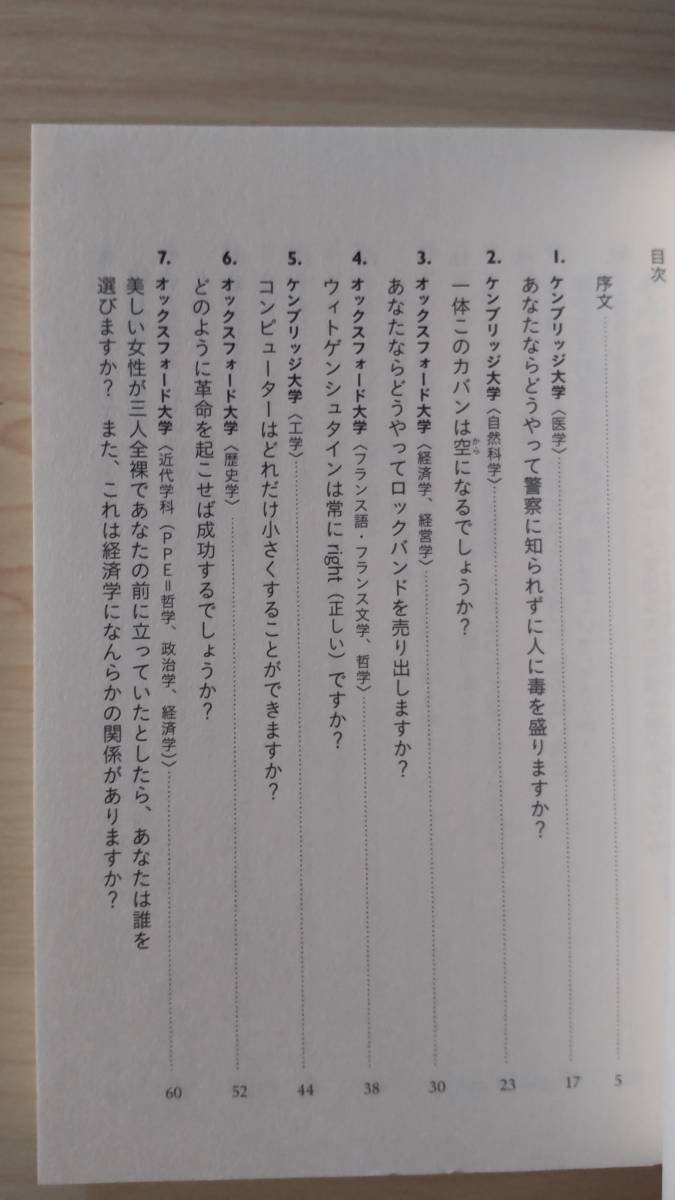 目次
序文 5
1. ケンブリッジ大学〈医学〉 17
あなたならどうやって警察に知られずに人に毒を盛りますか？
2. ケンブリッジ大学〈自然科学〉 23
一体このカバンは空になるでしょうか？
から
3. オックスフォード大学〈経済学、経営学〉 30
あなたならどうやってロックバンドを売り出しますか？
4. オックスフォード大学〈フランス語・フランス文学、哲学〉 38
ウィトゲンシュタインは常にright（正しい）ですか？
5. ケンブリッジ大学〈工学〉 44
コンピューターはどれだけ小さくすることができますか？
6. オックスフォード大学〈歴史学〉 52
どのように革命を起こせば成功するでしょうか？
7. オックスフォード大学〈近代学科（ＰＰＥ＝哲学、政治学、経済学）〉 60
美しい女性が三人全裸であなたの前に立っていたとしたら、あなたは誰を
選びますか？ また、これは経済学になんらかの関係がありますか？